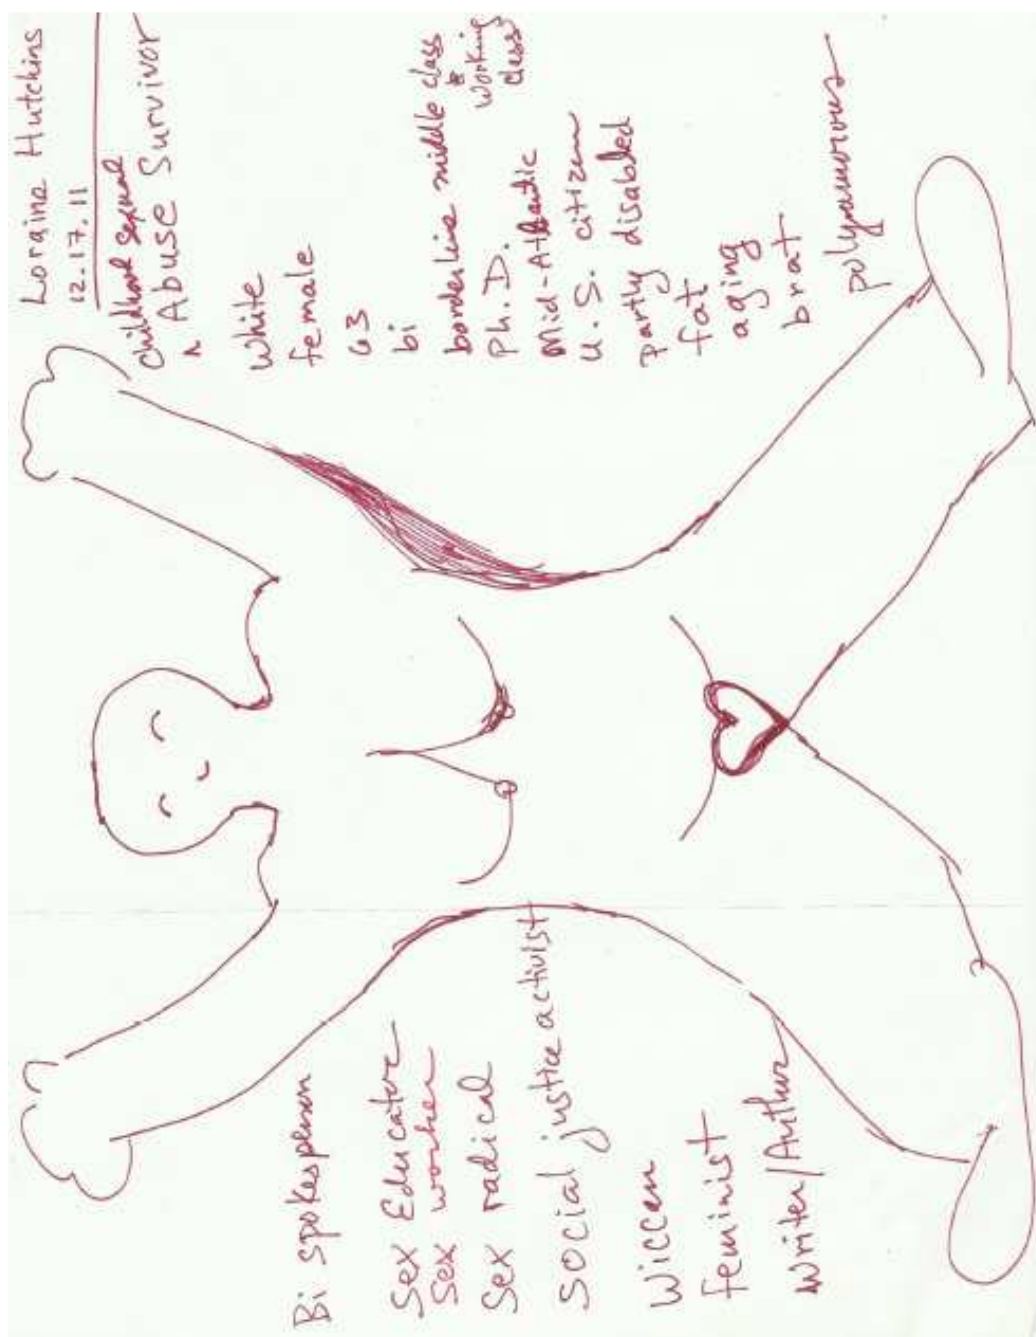 Loraine Hutchins
12.17.11
childhood sexual
^ Abuse Survivor
White
female
63
bi
borderline middle class
& working
class
Ph.D.
Mid-Atlantic
U.S. citizen
partly disabled
fat
aging
brat
polyamorous
Bi spokesperson
Sex Educator
Sex worker
Sex radical
Social justice activist
Wiccan
feminist
Writer/Author